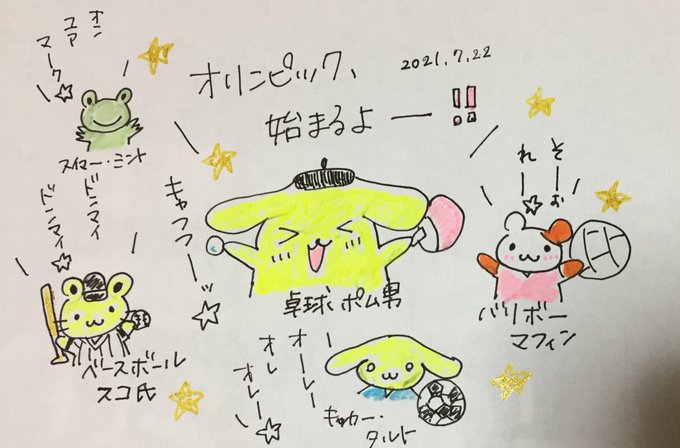 オン
ユア
マーク☆
オリンピック、
始まるよー!!
2021.7.22
スイマー・ミント
ドンマイ
ドンマイ☆
ベースボール
スコ氏
キャッフーッ☆
卓球、ポム男
そーぉ
れ☆
バリボー
マフィン
オーレー
オレ
オレー☆
キャッカー・
タルト